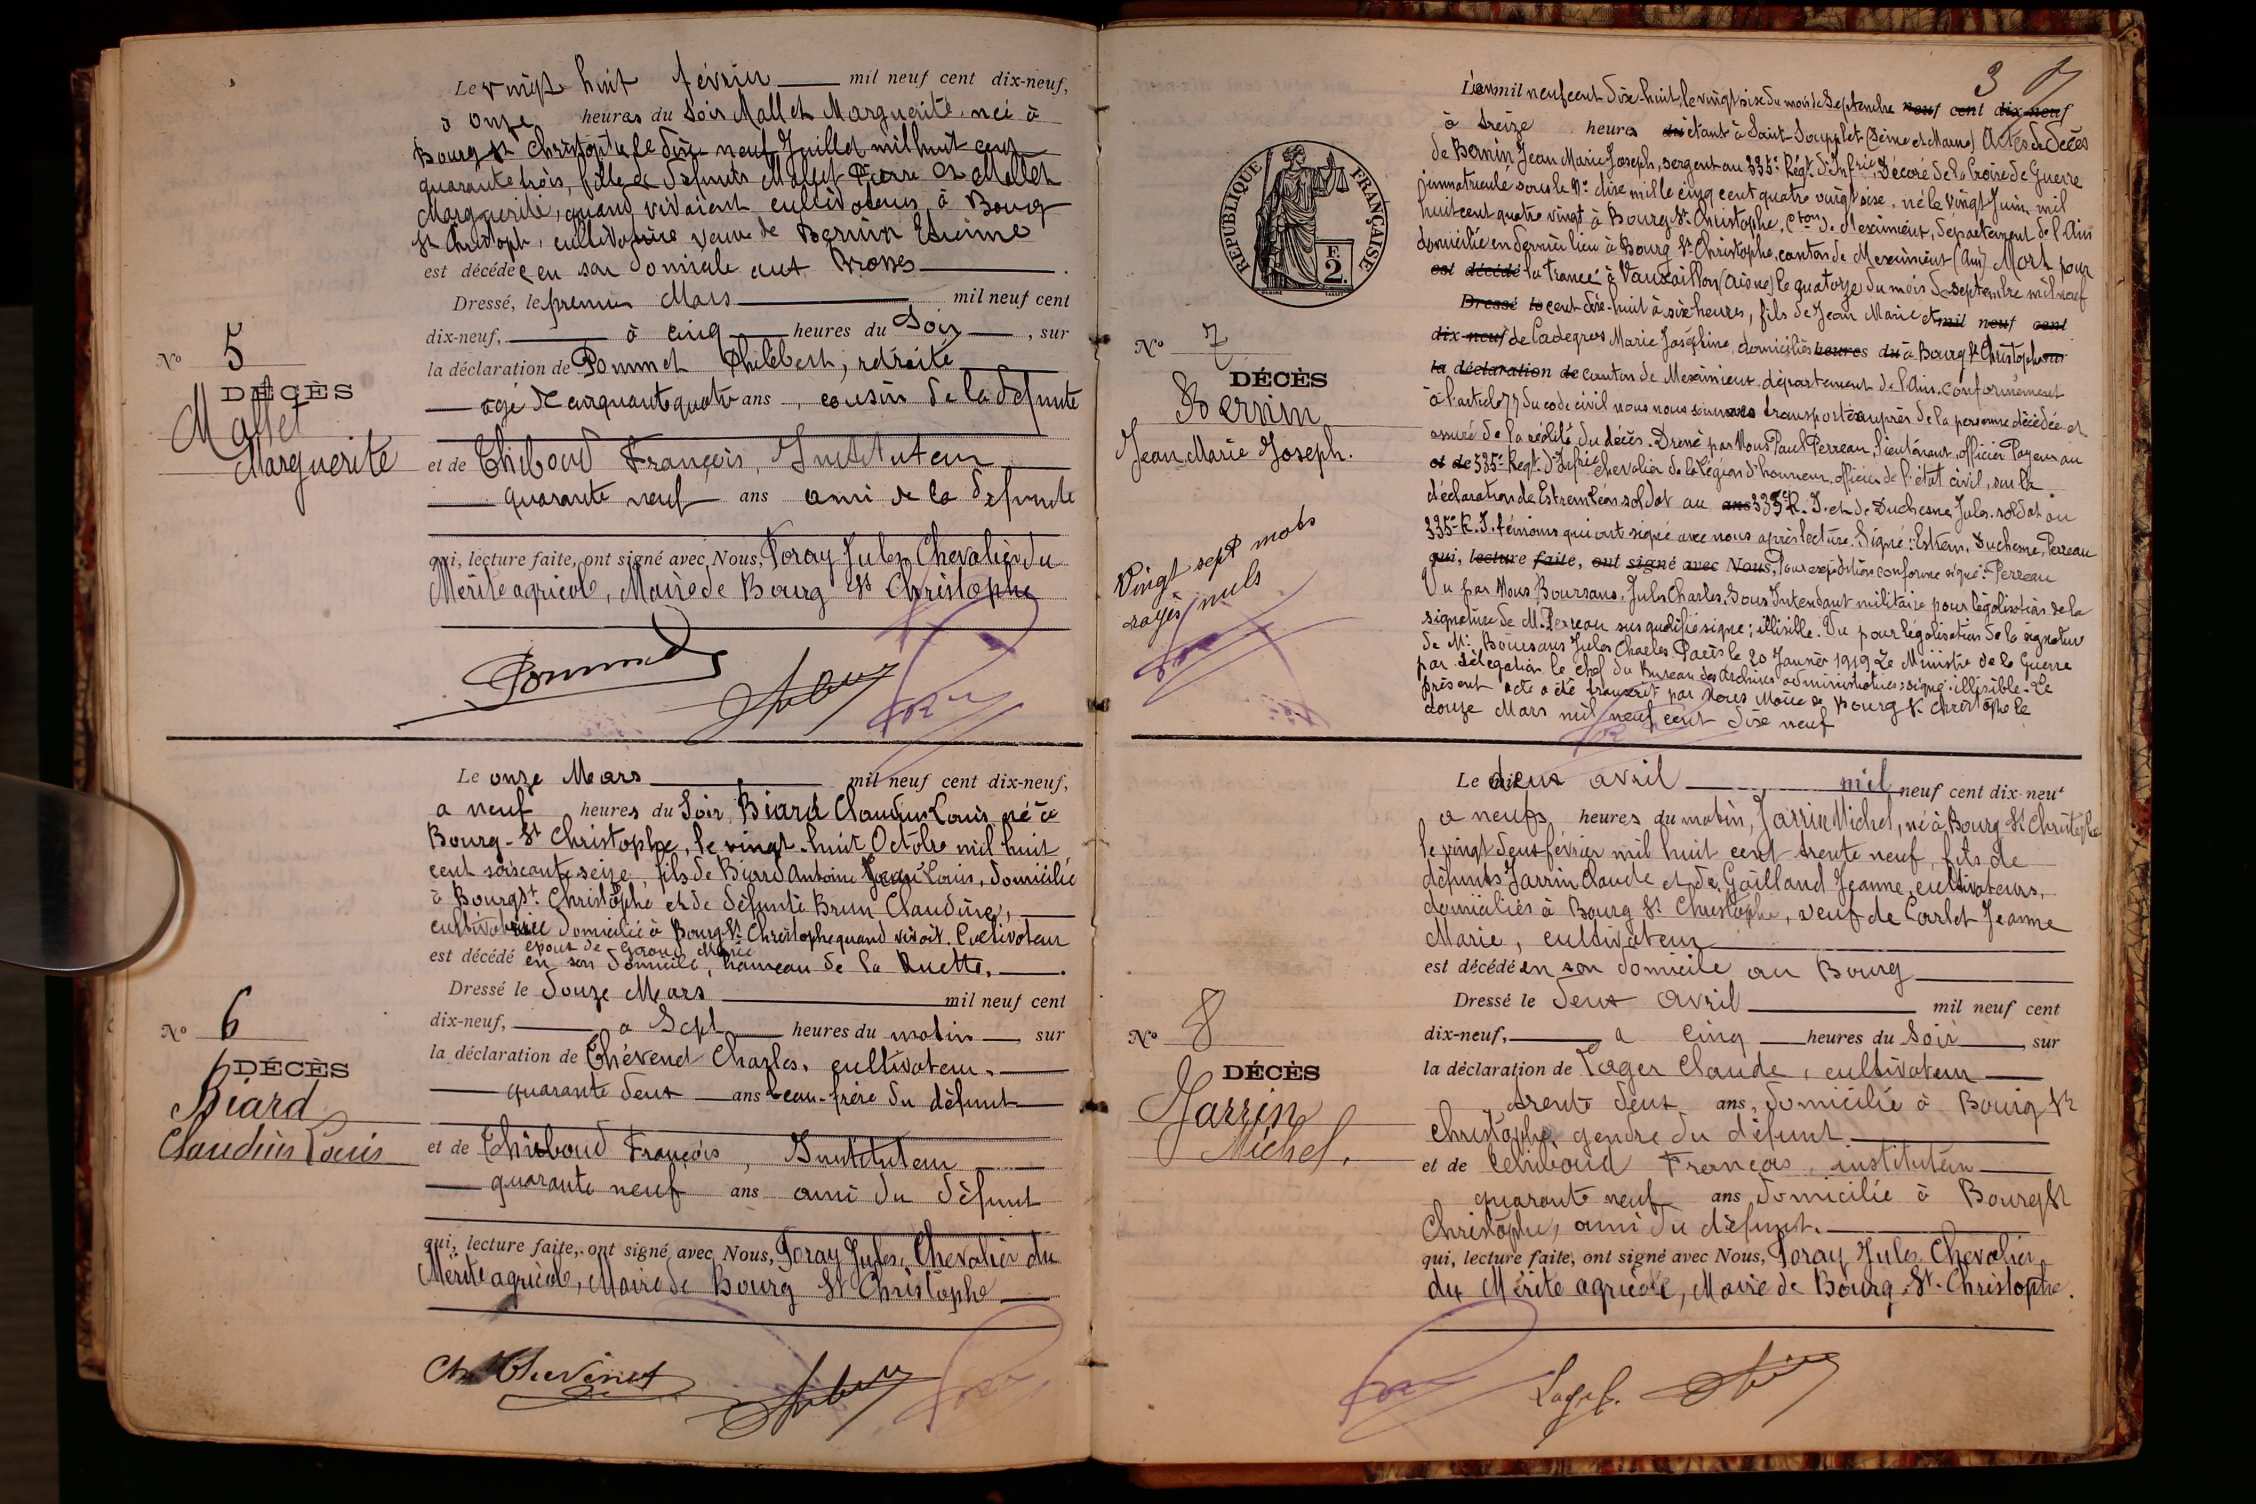 Le vingt huit février mil neuf cent dix-neuf,
à onze heures du Soir Mallet Marguerite, née à
Bourg St Christophe le dix-neuf Juillet mil huit cent
quarante trois, fille de défunts Mallet Pierre et Mallet
Marguerite, quand vivaient cultivateurs à Bourg
St Christoph, cultivatrice veuve de Bernin Etienne
est décédée en son domicile aux Brosses
Dressé, le premier Mars mil neuf cent
dix-neuf, à cinq heures du Soir, sur
la déclaration de Pommet Philibert, retraité
agé de cinquante quatre ans, cousin de la defunte
et de Thiboud François, Instituteur
quarante neuf ans ami de la défunte
qui, lecture faite, ont signé avec Nous, Poray Jules Chevalier du
Mérite agricole, Maire de Bourg St Christophe
Nº 5
DÉCÈS
Mallet
Marguerite
Le onze Mars mil neuf cent dix-neuf,
a neuf heures du Soir, Biard Claudius Louis né à
Bourg-St Christophe, le vingt-huit Octobre mil huit
cent soixante seize, fils de Biard Antoine Jean Louis, domicilié
à Bourg St Christophe et de défunte Brun Claudine,
cultivatrice domiciliée à Bourg St Christophe quand vivait. Cultivateur
époux de Giroud Marie
est décédé en son domicile, hameau de la Ruette.
Dressé le douze Mars mil neuf cent
dix-neuf, a Sept heures du matin, sur
la déclaration de Thévenet Charles, cultivateur.
quarante deux ans beau-frère du défunt
et de Thiboud François, Instituteur
quarante neuf ans ami du défunt
qui, lecture faite, ont signé avec Nous, Poray Jules, Chevalier du
Mérite agricole, Maire de Bourg St Christophe
Ch Thevenet
Nº 6
DÉCÈS
Biard
Claudius Louis
3
L'an mil neuf cent dix-huit, le vingt six du mois de Septembre neuf cent dix-neuf
à treize heures du étant à Saint-Soupplet (Seine et Marne) Actes de décès
de Bernin Jean Marie Joseph, sergent au 335e Régt d'Infrie, Décoré de la Croix de Guerre
immatriculé sous le No dix mille cinq cent quatre vingt six, né le vingt Juin mil
huit cent quatre vingt à Bourg St Christophe, Cton de Meximieux, département de l'Ain
domicilié en dernier lieu à Bourg St Christophe, canton de Meximieux (Ain) Mort pour
est décédé la France à Vauxaillon (Aisne) le quatorze du mois de septembre mil neuf
Dressé le cent dix-huit à six heures, fils de Jean Marie et mil neuf cent
dix-neuf de Cadegros Marie Joséphine, domiciliés heures du à Bourg St Christophe sur
la déclaration de canton de Meximieux, département de l'Ain. Conformément
à l'article 77 du code civil nous nous sommes transporté auprès de la personne décédée et
assuré de la réalité du décès. Dressé par Nous Paul Perreau, lieutenant, officier Payeur au
et de 335e Regt d'Infrie Chevalier de la légion d'honneur, officier de l'état civil, sur la
déclaration de Estrem Léon soldat au ans 335e R. I. et de Duchesne Jules soldat au
335e R. I. témoins qui ont signé avec nous après lecture. Signé: Estrem, Duchesne, Perreau
qui, lecture faite, ont signé avec Nous, Pour expédition conforme signé: Perreau
Vu par Nous Boursaus, Jules Charles, Sous Intendant militaire pour légalisation de la
signature de M. Perreau sus qualifié signe; illisible. Vu pour légalisation de la signature
de Mr Boursaus Jules Charles. Paris le 20 Janvier 1919 Le Ministre de la Guerre
par délégation le chef du Bureau des Archives administratives: signé: illisible. Le
présent acte a été transcrit par Nous Maire de Bourg St Christophe le
douze Mars mil neuf cent dix neuf
RÉPUBLIQUE FRANÇAISE
F.
2
Nº 7
DÉCÈS
Bernin
Jean Marie Joseph.
Vingt sept mots
rayés nuls
Le deux avril mil neuf cent dix-neuf
a neuf heures du matin, Jarrin Michel, né à Bourg St Christophe
le vingt deux février mil huit cent trente neuf, fils de
défunts Jarrin Claude et de Gailland Jeanne, cultivateurs,
domiciliés à Bourg St Christophe, veuf de Carlet Jeanne
Marie, cultivateur
est décédé en son domicile au Bourg
Dressé le deux avril mil neuf cent
dix-neuf, a cinq heures du Soir, sur
la déclaration de Lager Claude, cultivateur
trente deux ans, domicilié à Bourg St
Christophe, gendre du défunt.
et de Thiboud François, instituteur
quarante neuf ans, domicilié à Bourg St
Christophe, ami du défunt.
qui, lecture faite, ont signé avec Nous, Poray Jules, Chevalier
du Mérite agricole, Maire de Bourg-St-Christophe.
Nº 8
DÉCÈS
Jarrin
Michel.